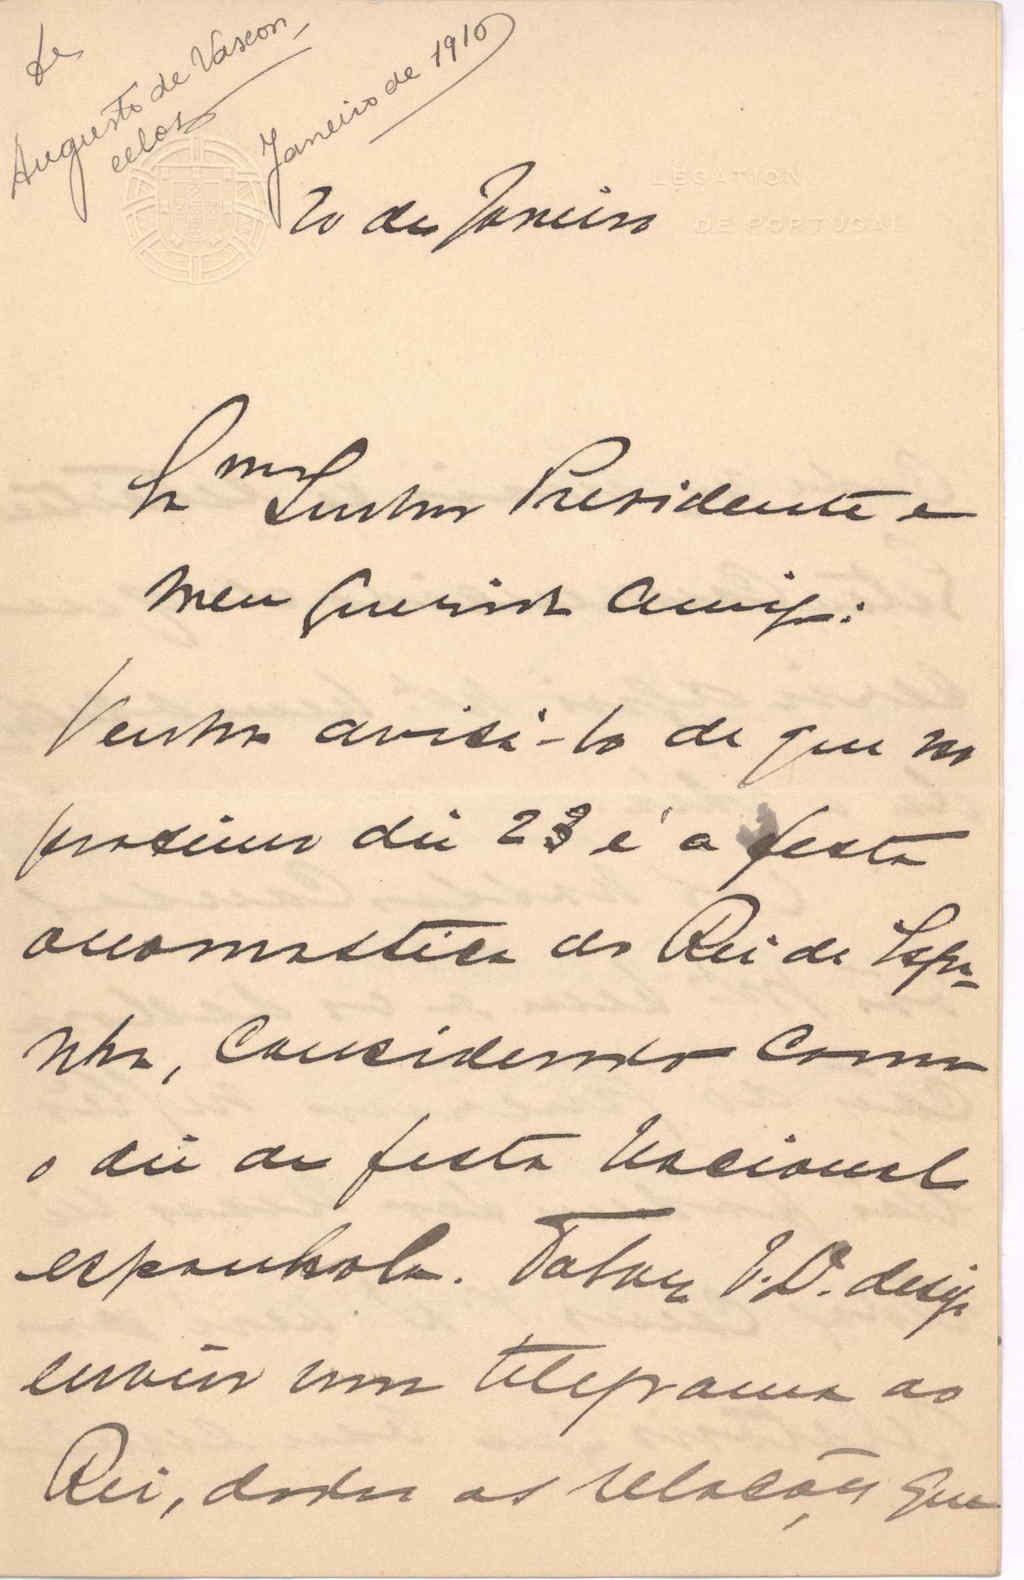 de
Augusto de Vascon-
celos
Janeiro de 1910
LEGATION
DE PORTUGAL
20 de Janeiro
Exmo Senhor Presidente e
meu querido amigo:
Venho avisá-lo de que no
proximo dia 23 é a festa
onomastica do Rei de Espa-
nha, considerado como
o dia de festa nacional
espanhola. Talvez V. Ex. deseje
enviar um telegrama ao
Rei, dadas as relações que